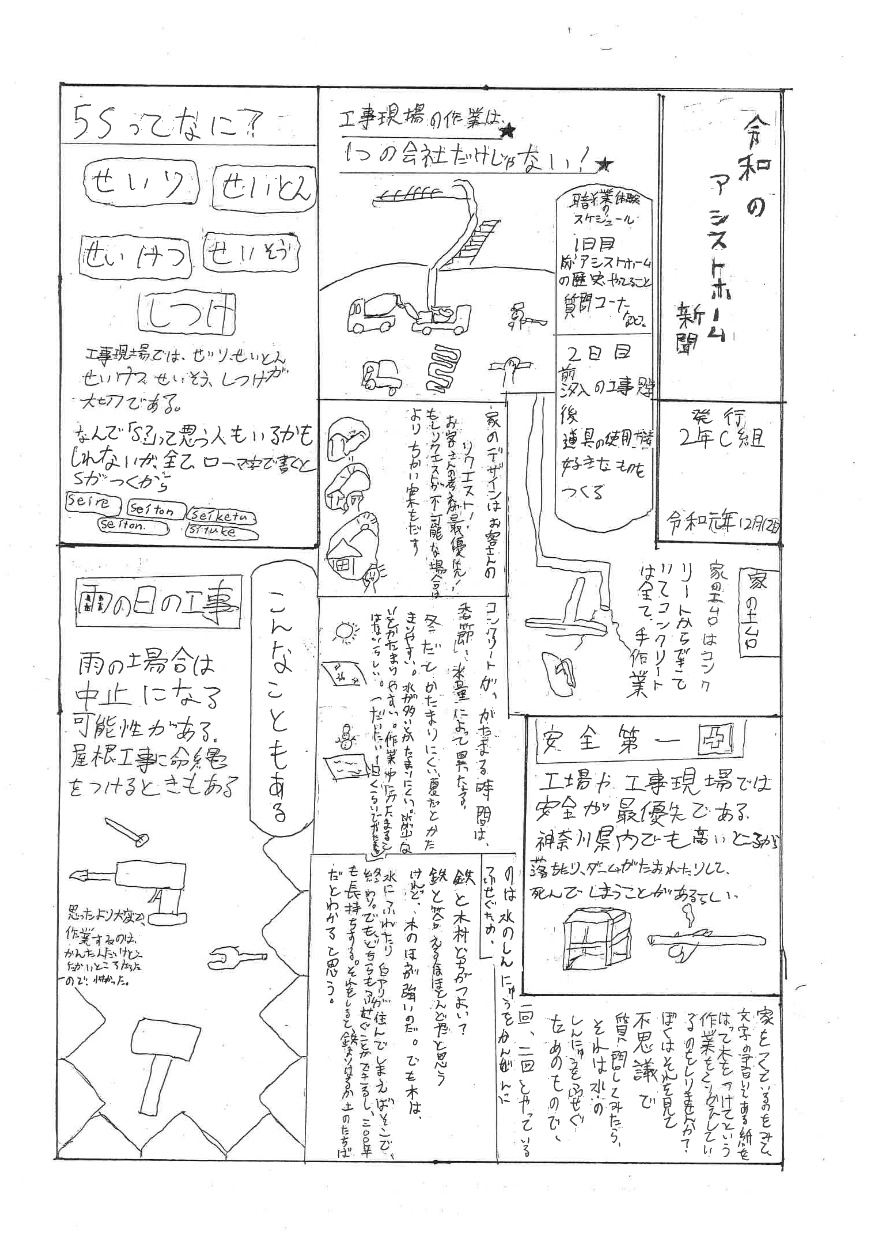 令和の
アシストホーム
新聞
発行
2年C組
令和元年12月12日
工事現場の作業は、
1つの会社だけじゃない!
職業体験
の
スケジュール
1日目
アシストホーム
の歴史、やってること
質問コーナー
など。
2日目
前
汐入の工事見学
後
道具の使用
好きなものを
つくる
5Sってなに?
せいり
せいとん
せいけつ
せいそう
しつけ
工事現場では、せいりせいとん
せいけつ、せいそう、しつけが
大切である。
なんで「S?」って思う人もいるかも
しれないが、全て、ローマ字で書くと
Sがつくから
seire
seiton
seiketu
seiton
situke
家の土台
家の土台はコンク
リートからできて
いてコンクリート
は全て、手作業
家のデザインはお客さんの
リクエスト!
お客さんの考えが最優先!
もしリクエストが不可能な場合は
よりちかい案をだす
コンクリートが、かたまる時間は、
季節、水量によって異なる。
冬だとかたまりにくい、夏だとかた
まりやすい。水が多いとかたまりにくい。水が少な
いとかたまりやすい。作業中にかたまること
はないらしい。
こんなこともある
雨の日の工事
雨の場合は
中止になる
可能性がある。
屋根工事に命縄
をつけるときもある
思ったより大変で、
作業するのは、
かんたんだけど
たかいところだった
ので、怖かった。
安全第一
工場や工事現場では
安全が最優先である。
神奈川県内でも高いところから
落ちたり、ダニームがたおれたりして、
死んでしまうことがあるらしい。
家をつくているのをみて、
文字の書いてある紙を
はって木をつけてという
作業をくりかえしてい
るのをしりませんか?
ぼくはそれを見て
不思議で
質問してみたら、
それは水の
しんにゅうをふせぐ
ためのもので、
一回、二回とやっている
のは水のしんにゅうをかんぜんに
ふせぐため、
鉄と木材どちがつよい?
鉄と答える人がほとんどだと思う
けれど、木のほが強いのだ。でも木は、
水にふれたり白アリが住んでしまえばそこで、
終わり。でもどちらもふせぐことができるし、二〇〇年
も長持ちする。それをしると鉄よりはるか上のたちば
だとわかると思う。